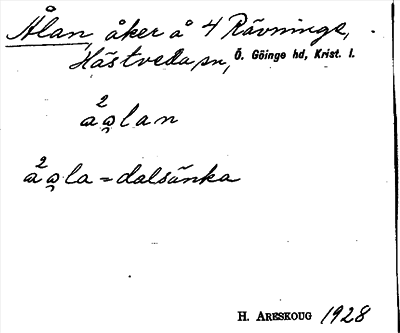 Ålan, åker å 4 Rävninge,
Hästveda sn, Ö. Göinge hd, Krist. l.
2
ao̯lan
2
ao̯la = dalsänka
H. ARESKOUG 1928